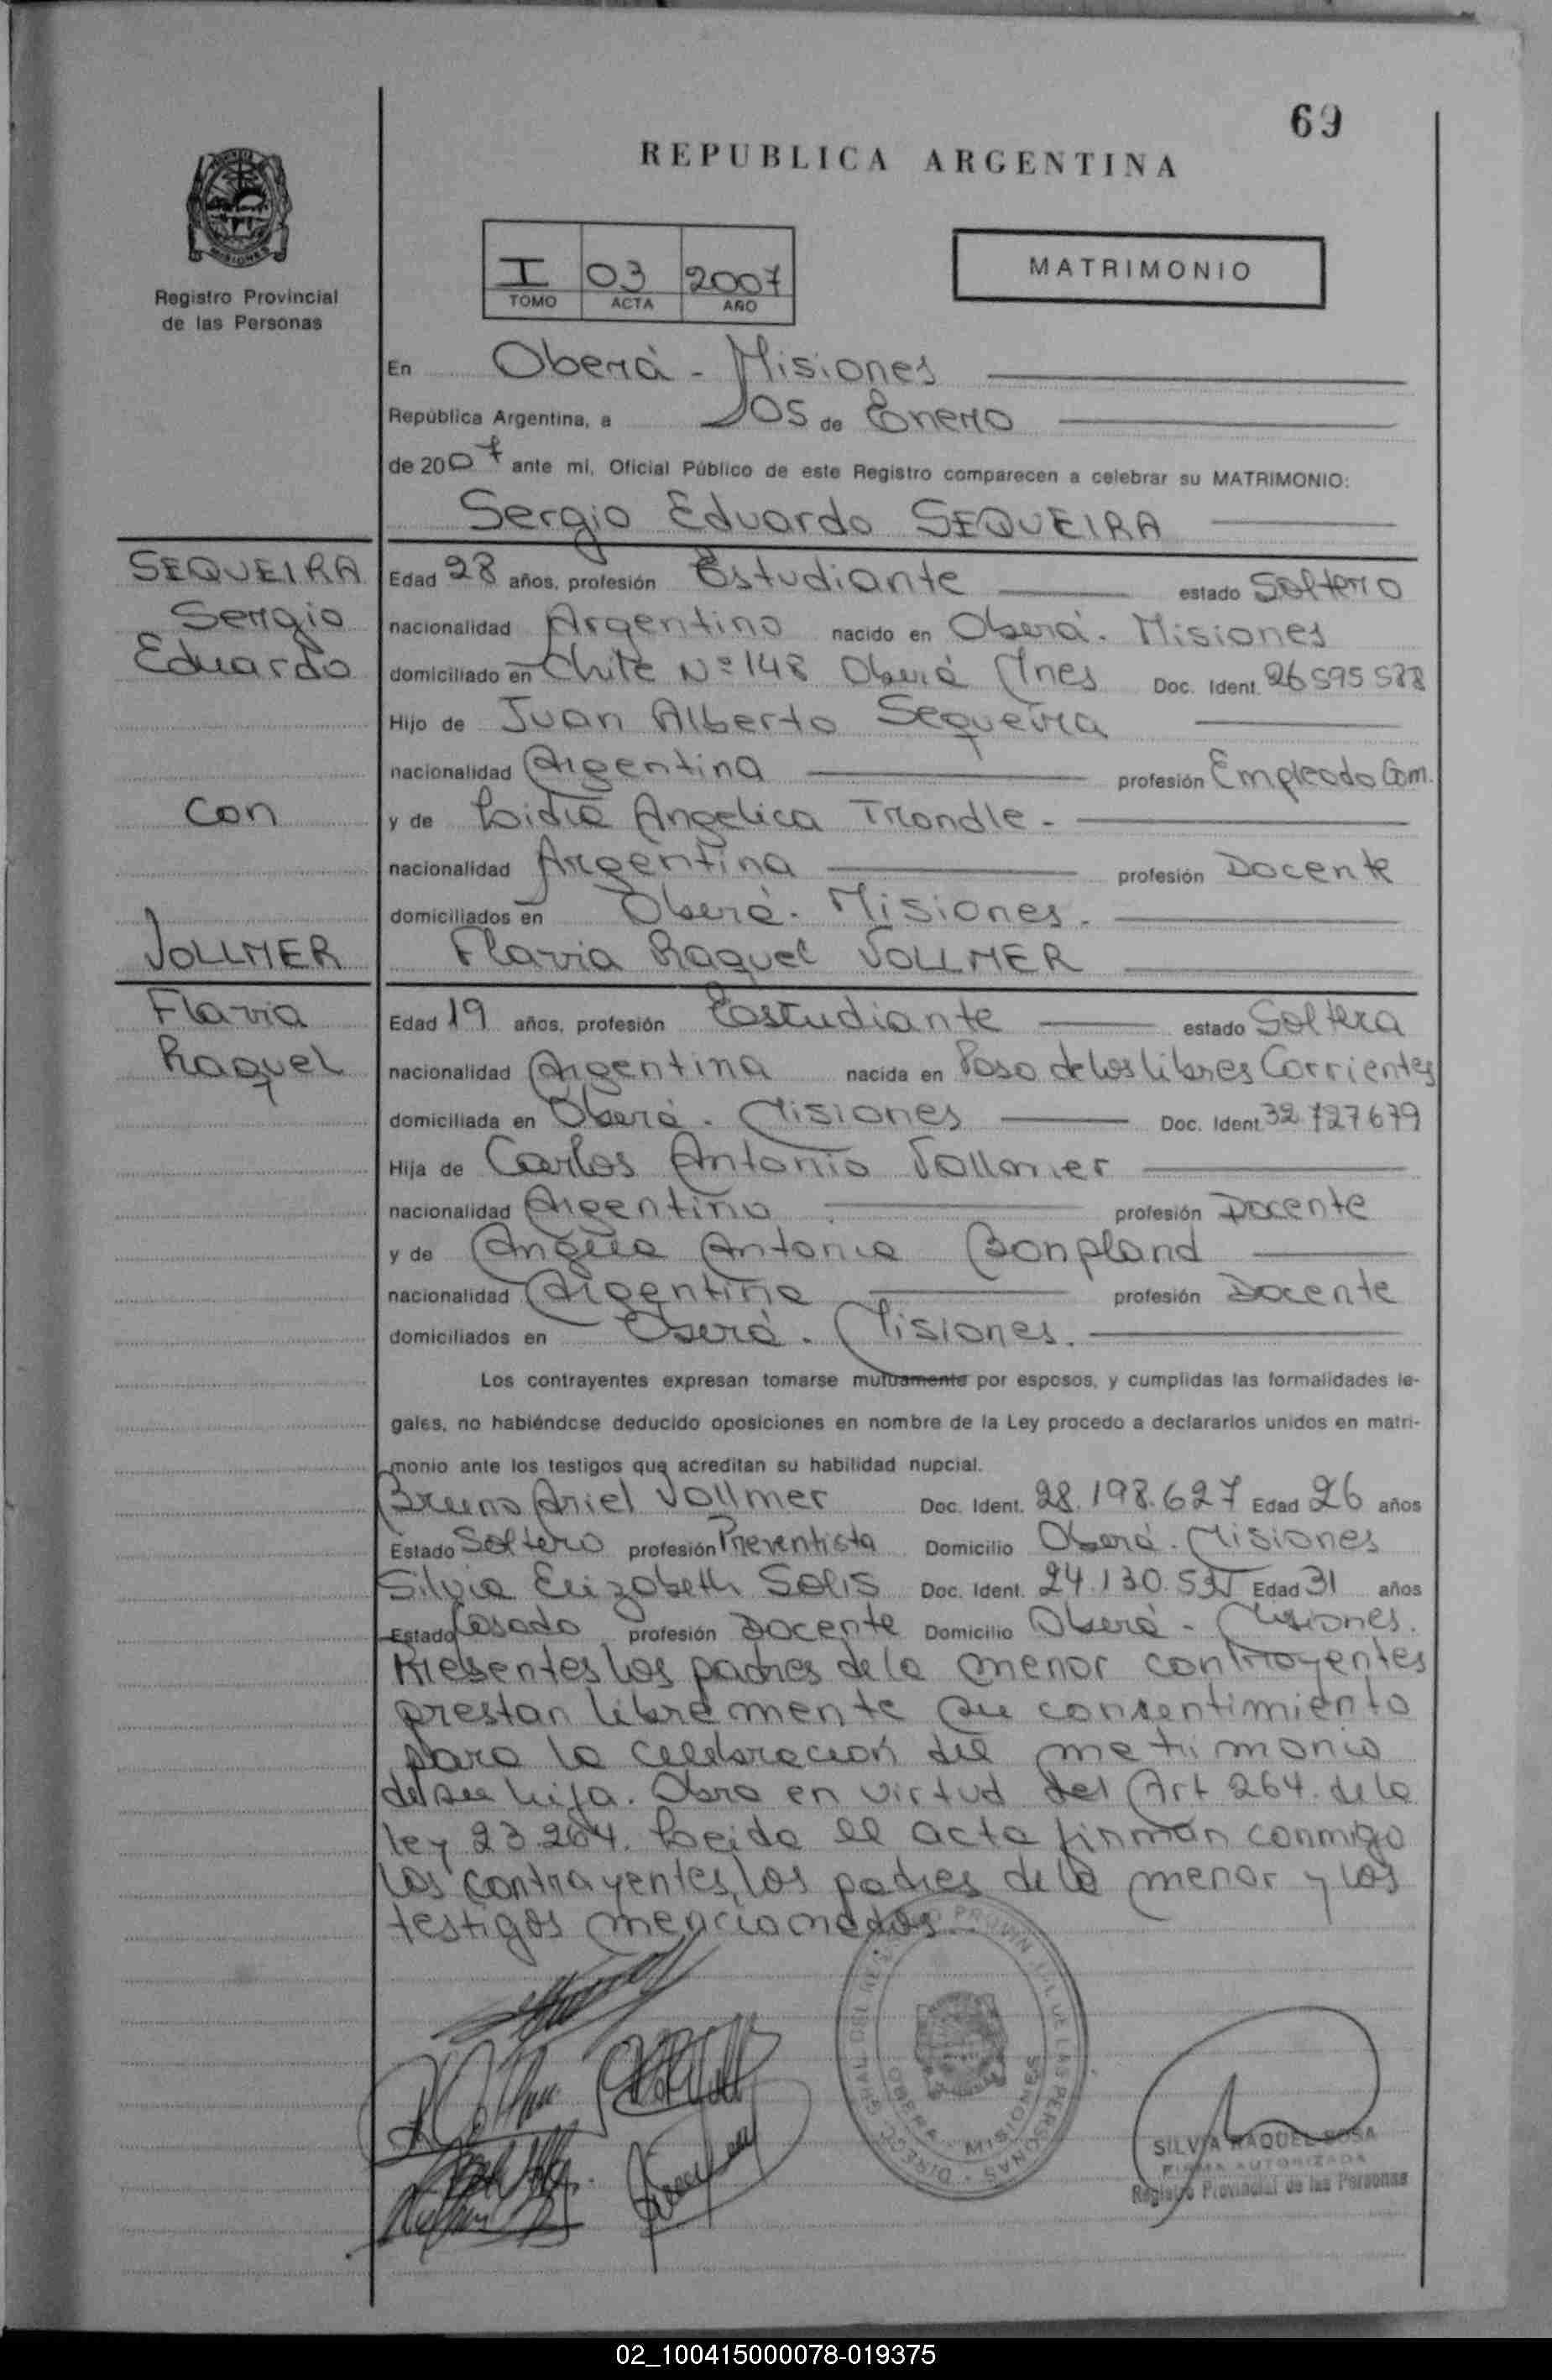 69
REPUBLICA ARGENTINA
MISIONES
Registro Provincial
de las Personas
I 03 2007
TOMO ACTA AÑO
MATRIMONIO
En Oberá - Misiones
República Argentina, a 05 de Enero
de 2007 ante mi, Oficial Público de este Registro comparecen a celebrar su MATRIMONIO:
Sergio Eduardo SEQUEIRA
SEQUEIRA
Sergio
Eduardo
con
VOLLMER
Flavia
Raquel
Edad 28 años, profesión Estudiante estado Soltero
nacionalidad Argentino nacido en Oberá. Misiones
domiciliado en Chile Nº 148 Oberá Mnes Doc. Ident. 26595588
Hijo de Juan Alberto Sequeira
nacionalidad Argentina profesión Empleado Com.
y de Lidia Angelica Trondle.
nacionalidad Argentina profesión Docente
domiciliados en Oberá. Misiones.
Flavia Raquel VOLLMER
Edad 19 años, profesión Estudiante estado Soltera
nacionalidad Argentina nacida en Paso de los Libres Corrientes
domiciliada en Oberá. Misiones Doc. Ident. 32.727679
Hija de Carlos Antonio Vollmer
nacionalidad Argentino profesión Docente
y de Antonia Bonpland
nacionalidad Argentina profesión Docente
domiciliados en Oberá. Misiones.
Los contrayentes expresan tomarse mutuamente por esposos, y cumplidas las formalidades le-
gales, no habiéndose deducido oposiciones en nombre de la Ley procedo a declararlos unidos en matri-
monio ante los testigos que acreditan su habilidad nupcial.
Bruno Ariel Vollmer Doc. Ident. 28.198.627 Edad 26 años
Estado Soltero profesión Preventista Domicilio Oberá. Misiones
Silvia Elizabeth SOLIS Doc. Ident. 24.130. Edad 31 años
Estado Casada profesión Docente Domicilio Oberá - Misiones.
Presentes los padres de la menor contrayentes
prestan libremente su consentimiento
para la celebracion del matrimonio
de su hija. Obro en virtud del Art 264. de la
ley 23.264. Leida el acta firman conmigo
los contrayentes, los padres de la menor y los
testigos mencionados
DIRECC. GRAL. DEL REG. PROVINCIAL DE LAS PERSONAS
OBERA - MISIONES
SILVIA RAQUEL SOSA
FIRMA AUTORIZADA
Registro Provincial de las Personas
02_100415000078-019375